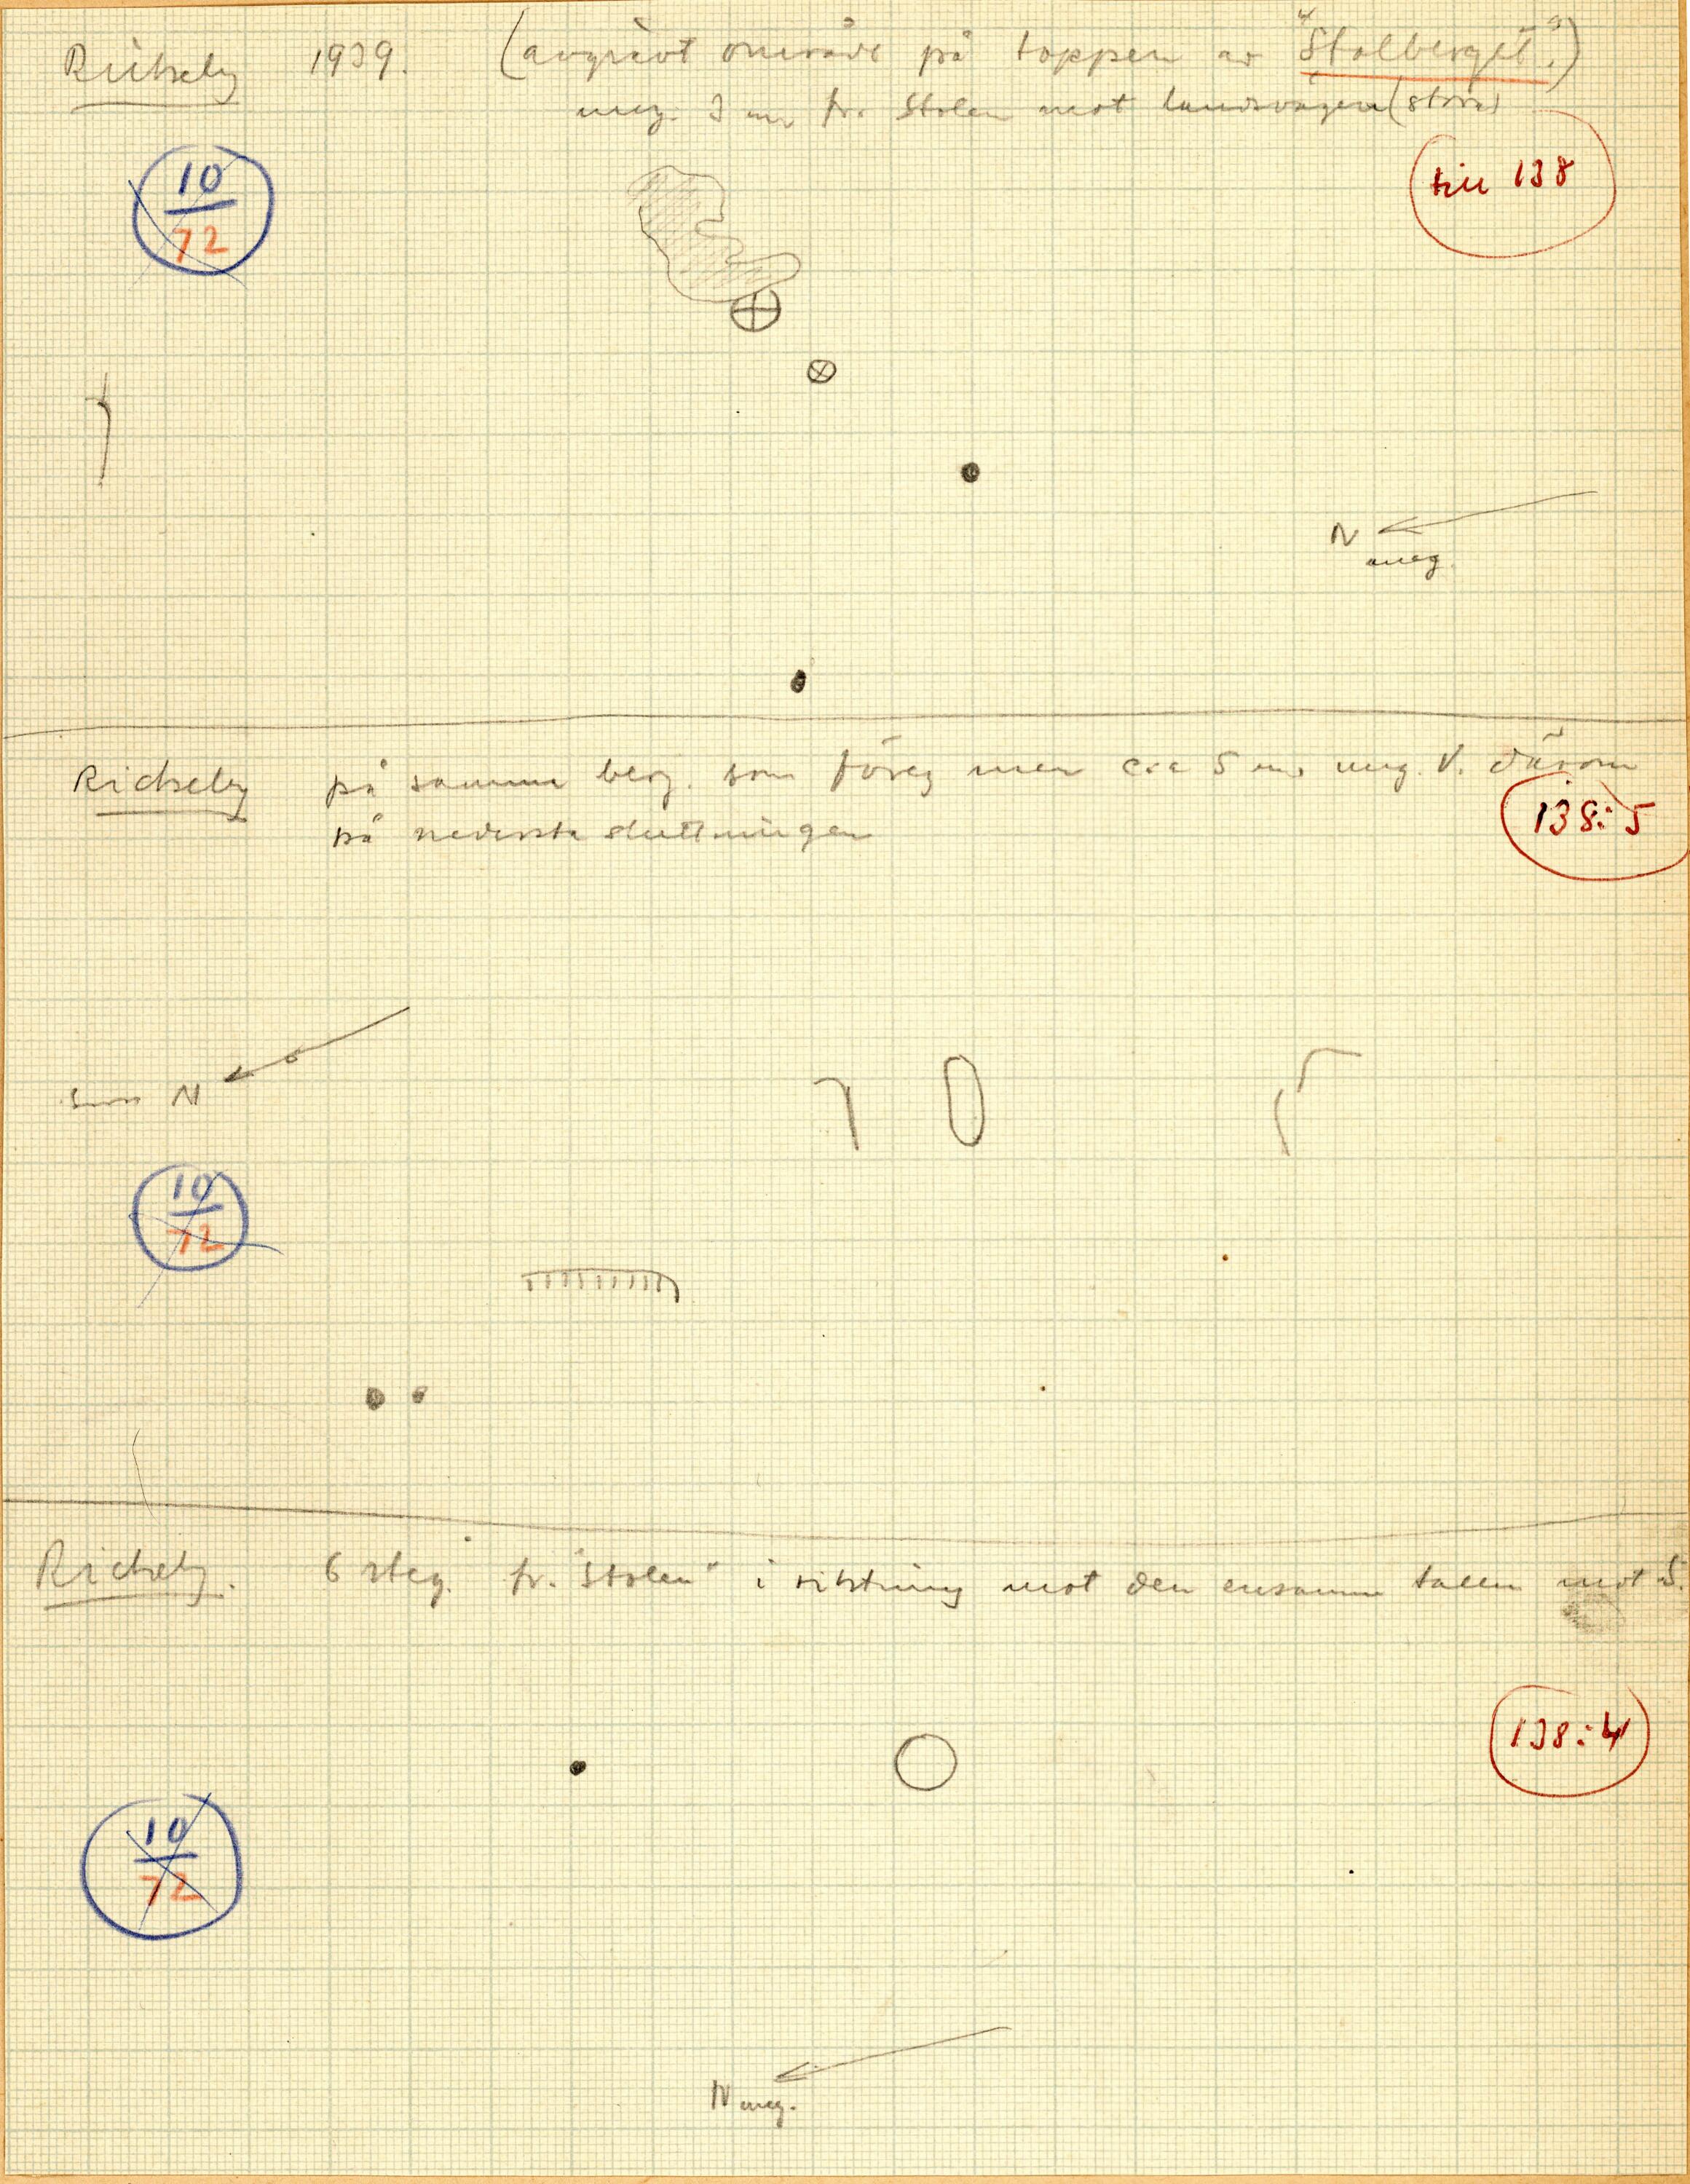 Rickeby 1939. (avgrävt område på toppen av "Stolberget".)
ung. 3 m fr. Stolen mot landsvägen (stora)
10
72
till 138
N
ung.
Rickeby på samma berg. som föreg men c:a 5 m ung. V. därom
på nedersta sluttningen
138:5
N
10
72
Rickeby. 6 steg. fr. "Stolen" i riktning mot den ensamma tallen mot S.
138:4
10
72
N ung.